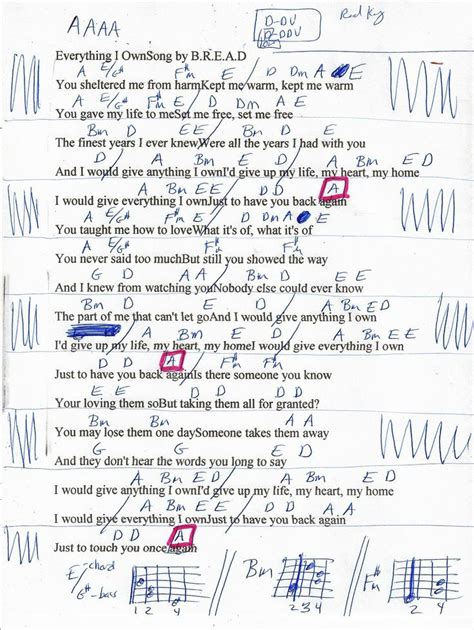 AAAA
D-DU
D-DDU
Red Key
Everything I OwnSong by B.R.E.A.D
A E/G# F#m E D Dm A E
You sheltered me from harmKept me warm, kept me warm
A E/G# F#m E D Dm A E
You gave my life to meSet me free, set me free
Bm D E E Bm D E
The finest years I ever knewWere all the years I had with you
D A Bm D A Bm E D
And I would give anything I ownI'd give up my life, my heart, my home
A Bm E E D D A
I would give everything I ownJust to have you back again
A E/G# F#m E D Dm A E
You taught me how to loveWhat it's of, what it's of
A E/G# F#m F#m
You never said too muchBut still you showed the way
G D A A Bm D E E
And I knew from watching youNobody else could ever know
Bm D E D A Bm E D
The part of me that can't let goAnd I would give anything I own
A Bm E D A Bm E E
I'd give up my life, my heart, my homeI would give everything I own
D D A F#m F#m
Just to have you back againIs there someone you know
E E D D D
Your loving them soBut taking them all for granted?
Bm Bm A A
You may lose them one daySomeone takes them away
G G E D
And they don't hear the words you long to say
A Bm E D A Bm E D
I would give anything I ownI'd give up my life, my heart, my home
A Bm E E D D A A
I would give everything I ownJust to have you back again
D D A
Just to touch you once again
E/G# -chord -bass
1 2 4
Bm
2 3 4
F#m
2 4